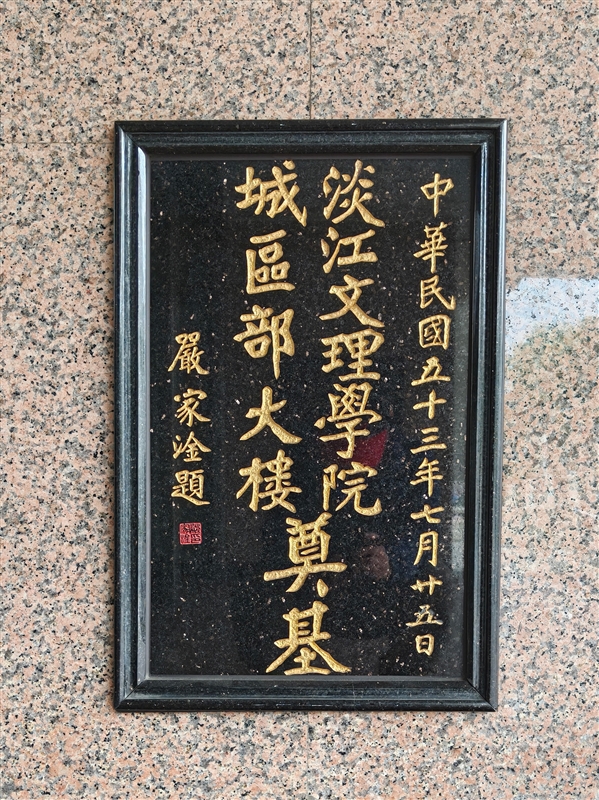 中華民國五十三年七月廿五日
淡江文理學院
城區部大樓
奠基
嚴家淦題